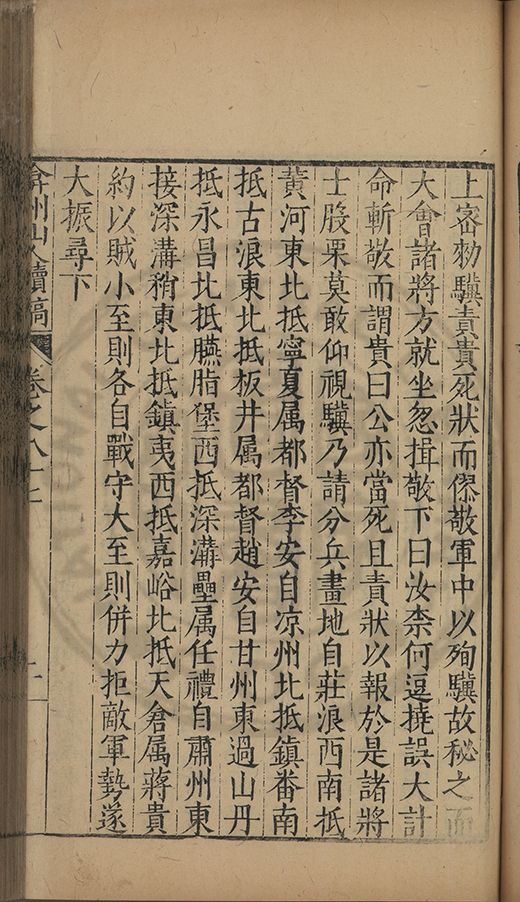 上密勑驥責貴死狀而僇敬軍中以殉驥故秘之而
大會諸將方就坐忽揖敬下曰汝柰何逗撓誤大計
命斬敬而謂貴曰公亦當死且責狀以報於是諸將
士股栗莫敢仰視驥乃請分兵畫地自莊浪西南抵
黄河東北抵寧夏属都督李安自凉州北抵鎮番南
抵古浪東北抵板井属都督趙安自甘州東過山丹
抵永昌北抵臙脂堡西抵深溝壘属任禮自肅州東
接深溝稍東北抵鎮夷西抵嘉峪北抵天倉属蔣貴
約以賊小至則各自戰守大至則併力拒敵軍勢遂
大振尋下
弇州山人續稿 卷之八十七 十一